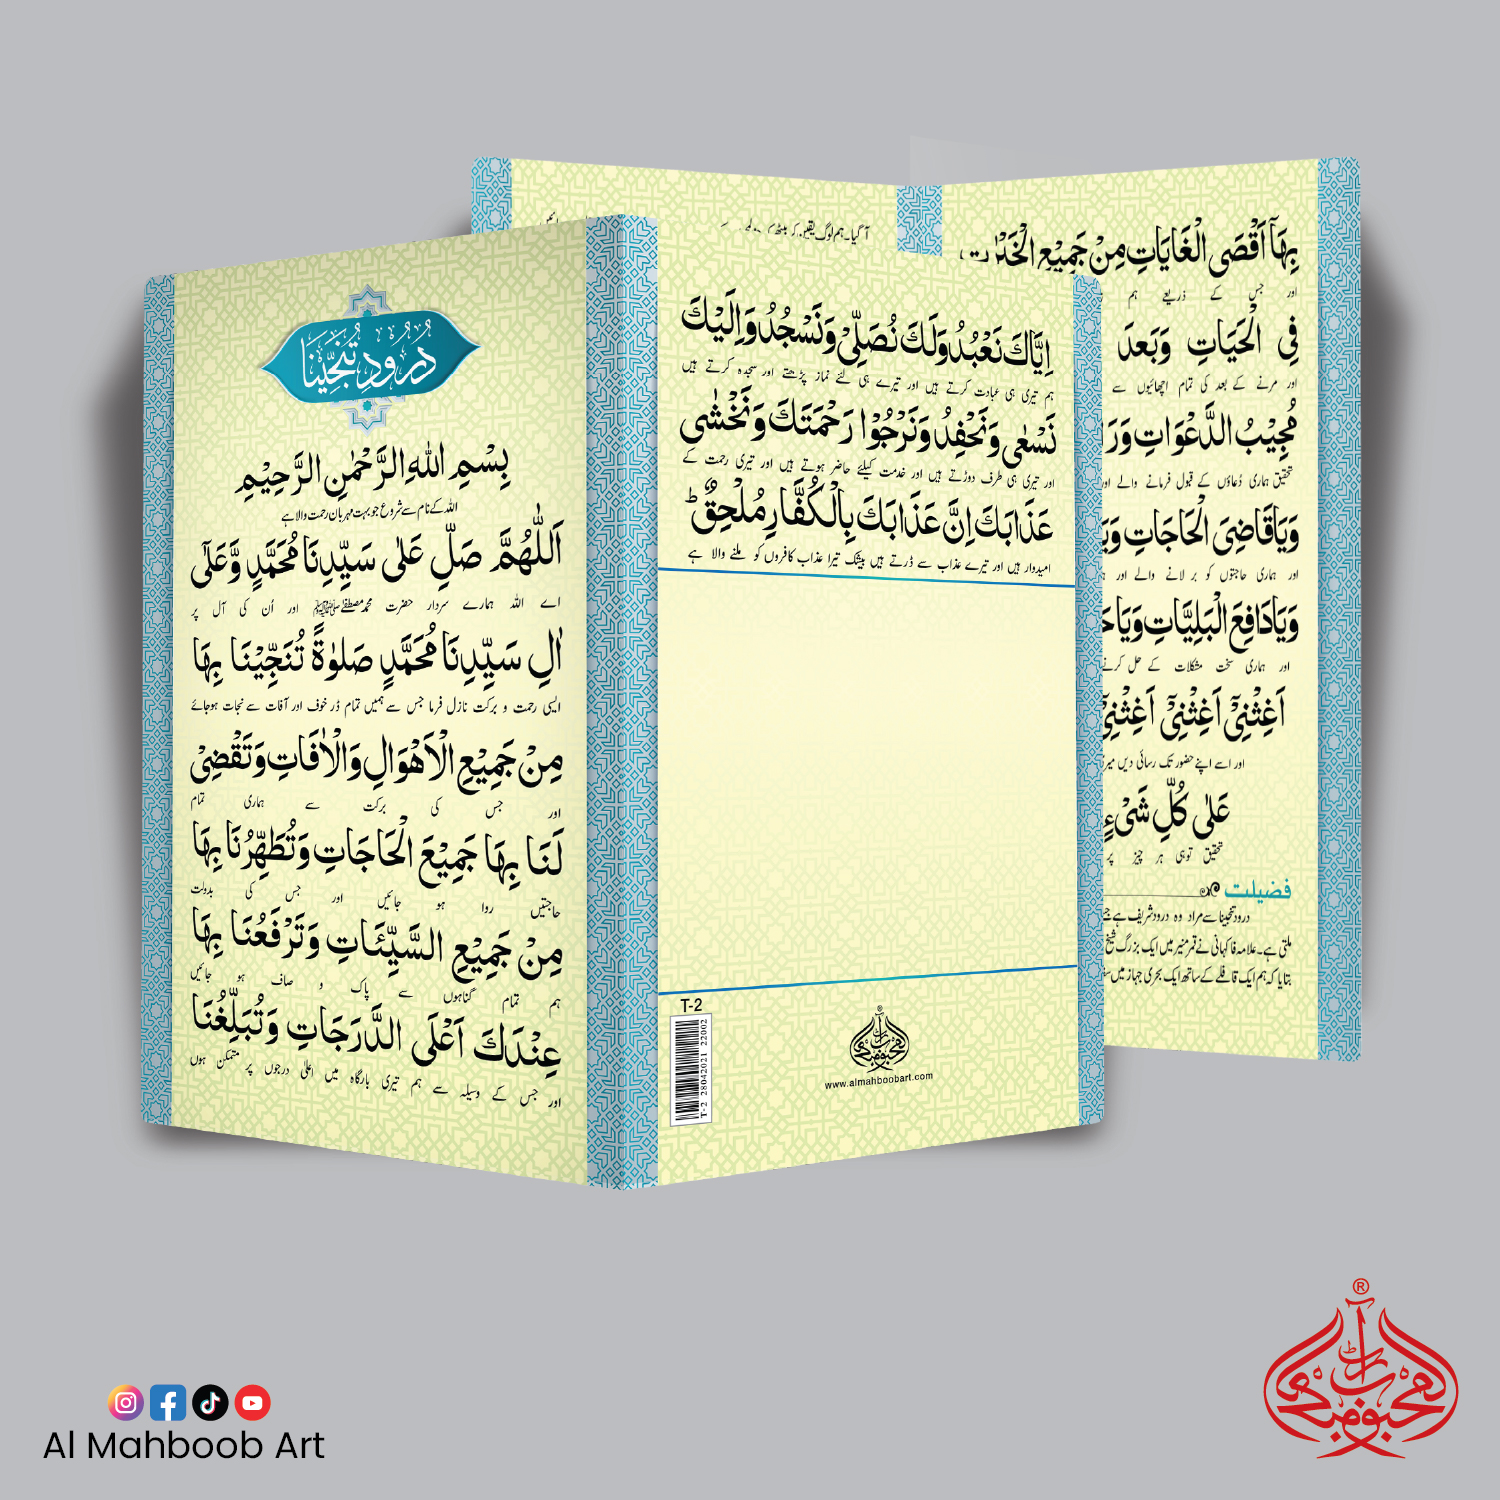 درود تنجینا
بِسْمِ اللهِ الرَّحْمٰنِ الرَّحِيْمِ
اللہ کے نام سے شروع جو بہت مہربان رحمت والا ہے
اَللّٰهُمَّ صَلِّ عَلٰى سَيِّدِنَا مُحَمَّدٍ وَّعَلٰٓى
اے اللہ ہمارے سردار حضرت محمد مصطفےٰ ﷺ اور اُن کی آل پر
اٰلِ سَيِّدِنَا مُحَمَّدٍ صَلٰوةً تُنَجِّيْنَا بِهَا
ایسی رحمت و برکت نازل فرما جس سے ہمیں تمام ڈر خوف اور آفات سے نجات ہوجائے
مِنْ جَمِيْعِ الْاَهْوَالِ وَالْاٰفَاتِ وَتَقْضِىْ
اور جس کی برکت سے ہماری تمام
لَنَا بِهَا جَمِيْعَ الْحَاجَاتِ وَتُطَهِّرُنَا بِهَا
حاجتیں روا ہو جائیں اور جس کی بدولت
مِنْ جَمِيْعِ السَّيِّئَاتِ وَتَرْفَعُنَا بِهَا
ہم تمام گناہوں سے پاک و صاف ہو جائیں
عِنْدَكَ اَعْلَى الدَّرَجَاتِ وَتُبَلِّغُنَا
اور جس کے وسیلہ سے ہم تیری بارگاہ میں اعلیٰ درجوں پر متمکن ہوں
اِيَّاكَ نَعْبُدُ وَلَكَ نُصَلِّىْ وَنَسْجُدُ وَاِلَيْكَ
ہم تیری ہی عبادت کرتے ہیں اور تیرے ہی لئے نماز پڑھتے اور سجدہ کرتے ہیں
نَسْعٰى وَنَحْفِدُ وَنَرْجُوْا رَحْمَتَكَ وَنَخْشٰى
اور تیری ہی طرف دوڑتے ہیں اور خدمت کیلئے حاضر ہوتے ہیں اور تیری رحمت کے
عَذَابَكَ اِنَّ عَذَابَكَ بِالْكُفَّارِ مُلْحِقٌ ؕ
امیدوار ہیں اور تیرے عذاب سے ڈرتے ہیں بیشک تیرا عذاب کافروں کو ملنے والا ہے
T-2
T-2 28042021 22002
www.almahboobart.com
آ گیا۔ ہم لوگ یقین
بِهَآ اَقْصَى الْغَايَاتِ مِنْ جَمِيْعِ الْخَيْرَاتِ
اور جس کے ذریعے ہم
فِى الْحَيَاتِ وَبَعْدَ
اور مرنے کے بعد کی تمام اچھائیوں سے
مُجِيْبُ الدَّعْوَاتِ وَرَا
تحقیق ہماری دُعاؤں کے قبول فرمانے والے اور
وَيَا قَاضِىَ الْحَاجَاتِ وَيَا
اور ہماری حاجتوں کو بر لانے والے اور
وَيَا دَافِعَ الْبَلِيَّاتِ وَيَا حَ
اور ہماری سخت مشکلات کے حل کرنے
اَغِثْنِىْٓ اَغِثْنِىْٓ اَغِثْنِىْ
اور اسے اپنے حضور تک رسائی دیں
عَلٰى كُلِّ شَىْءٍ
تحقیق توہی ہر چیز پر
فضیلت
درود تنجینا سے مراد وہ درود شریف ہے
ملتی ہے۔ علامہ فاکہانی نے قمر منیر میں ایک بزرگ شیخ
بتایا کہ ہم ایک قافلے کے ساتھ ایک بحری جہاز میں
Al Mahboob Art
®